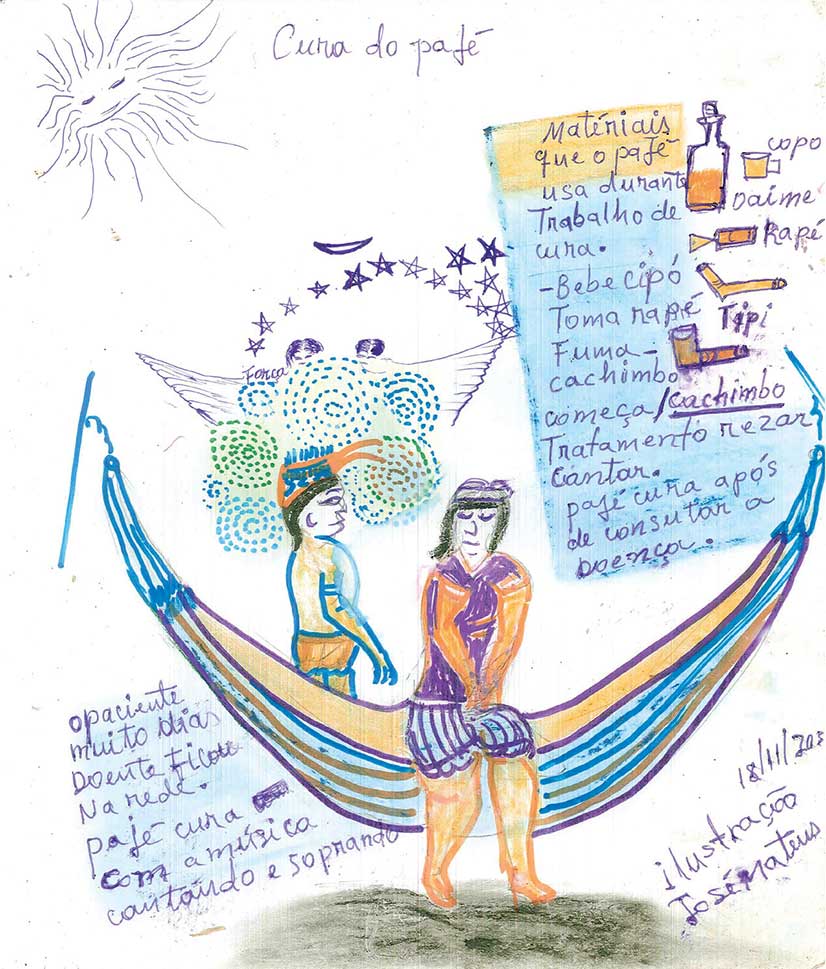 Cura do pajé
Materiais
que o pajé
usa durante
Trabalho de
cura.
-Bebe cipó
Toma rapé
Fuma-
cachimbo
começa/
Tratamento rezar
Cantar.
pajé cura após
de consutar a
Doença.
copo
Daime
Rapé
Tipi
cachimbo
Força
opaciente
muito dias
Doente ficou
Na rede.
pajé cura
com a música
cantando e soprando
18/11/
ilustração
José Mateus